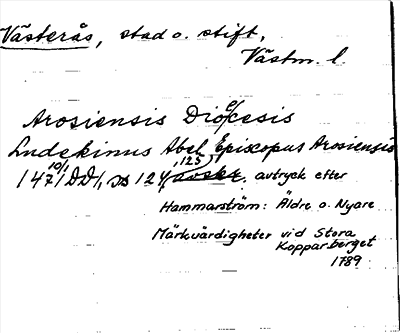 Västerås, stad o. stift,
Västm. l.
Arosiensis Diöcesis
Ludekinus Abel Episcopus Arosiensis
10/1 125
147 DD1, ss 124, avskr. avtryck efter
Hammarström: Äldre o. Nyare
Märkvärdigheter vid Stora
Kopparberget
1789